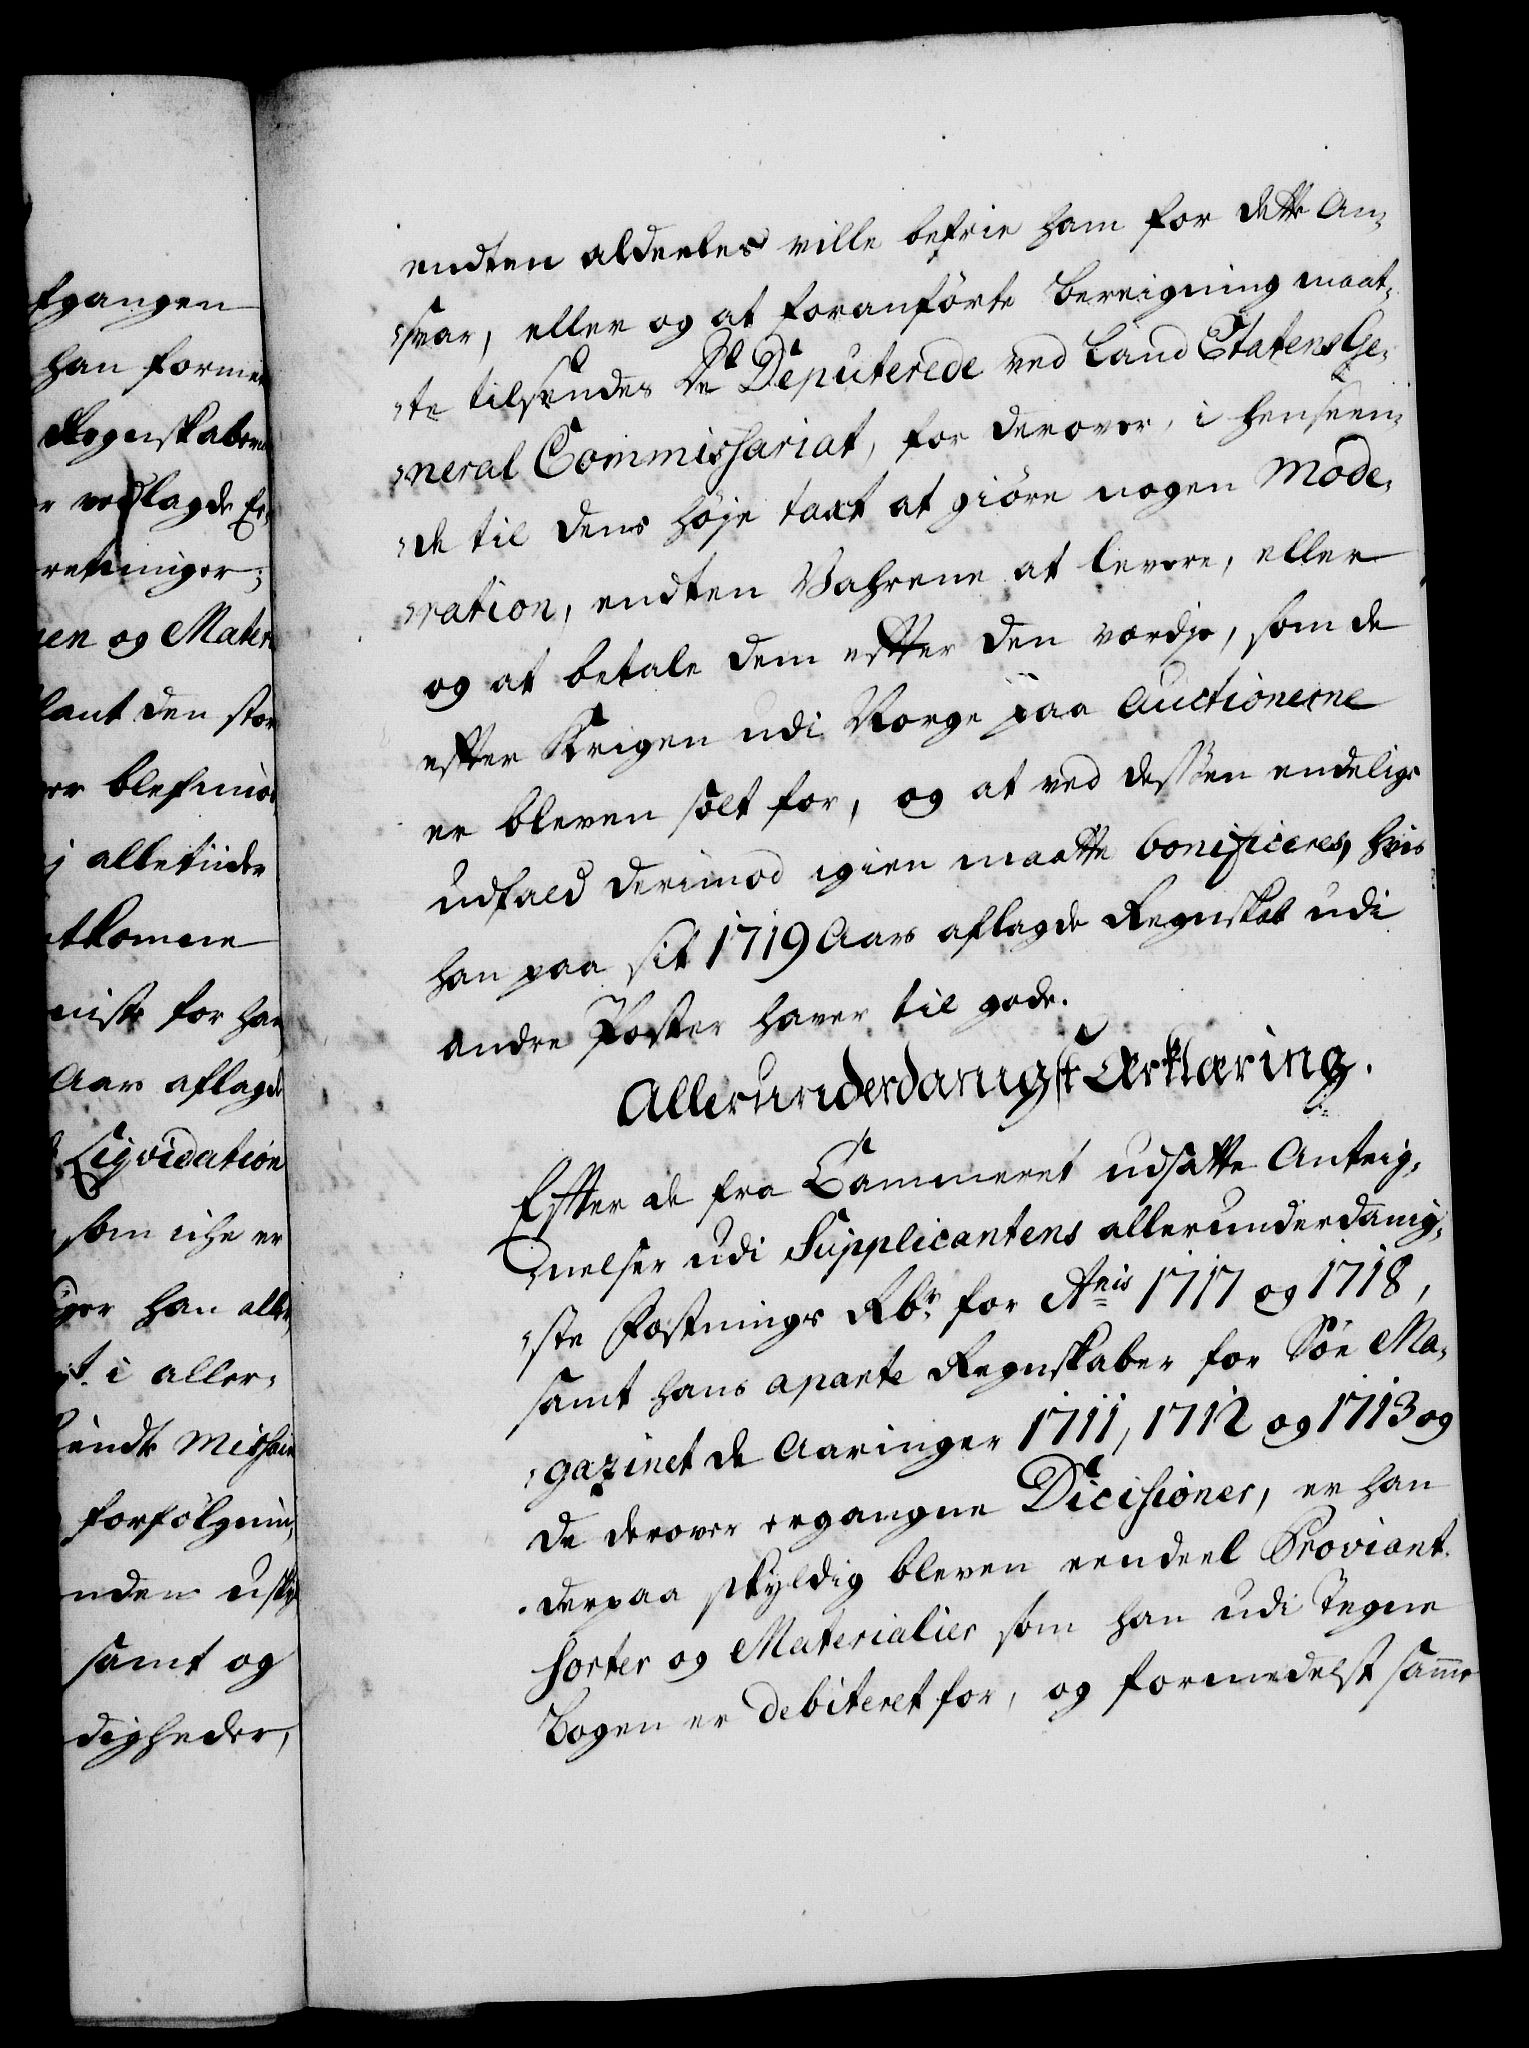 fgangen
han formee
Regnskaber
r vedlagde Er
retninger;
en og Mater
lant den stor
er blefmid
j alletiider
tkomne
mist for ham
Aars aflagde
Liqvidation
som iche er
ger han aller
st. i aller-
endt Missive
forfølgnin,
nden uskÿ
samt og
digheder,
endten aldeeles ville befrie ham for dette An-
svar, eller og at foranførte Bereigning maat-
te tilsendes De Deputerede ved Land Etatens Ge-
neral Commissariat, for derover, i henseen-
de til dens høje taxt at giöre nogen Mode-
ration, endten Vahrene at levere, eller
og at betale dem effter den værdje, som de
effter Krigen udi Norge paa Auctionerne
er bleven solt for, og at ved dessen endelige
udfald derimod igien maatte bonificeres, hvis
han paa sit 1719 Aars aflagde Regnskab udi
andre Poster haver til gode.
Allerunderdanigst Erklæring.
Effter de fra Cammeret udsatte Anteig-
nelser udi Supplicantens allerunderdanig-
ste Fæstnings Rbr for Anis 1717 og 1718,
samt hans aparte Regnskaber for Söe Ma-
gazinet de Aaringer 1711, 1712 og 1713 og
de derover ergangne Dicisioner, er han
derpaa skyldig bleven eendeel Proviant
Sorter og Materialier som han udi Tegne
Bogen er debiteret for, og formedelst samme